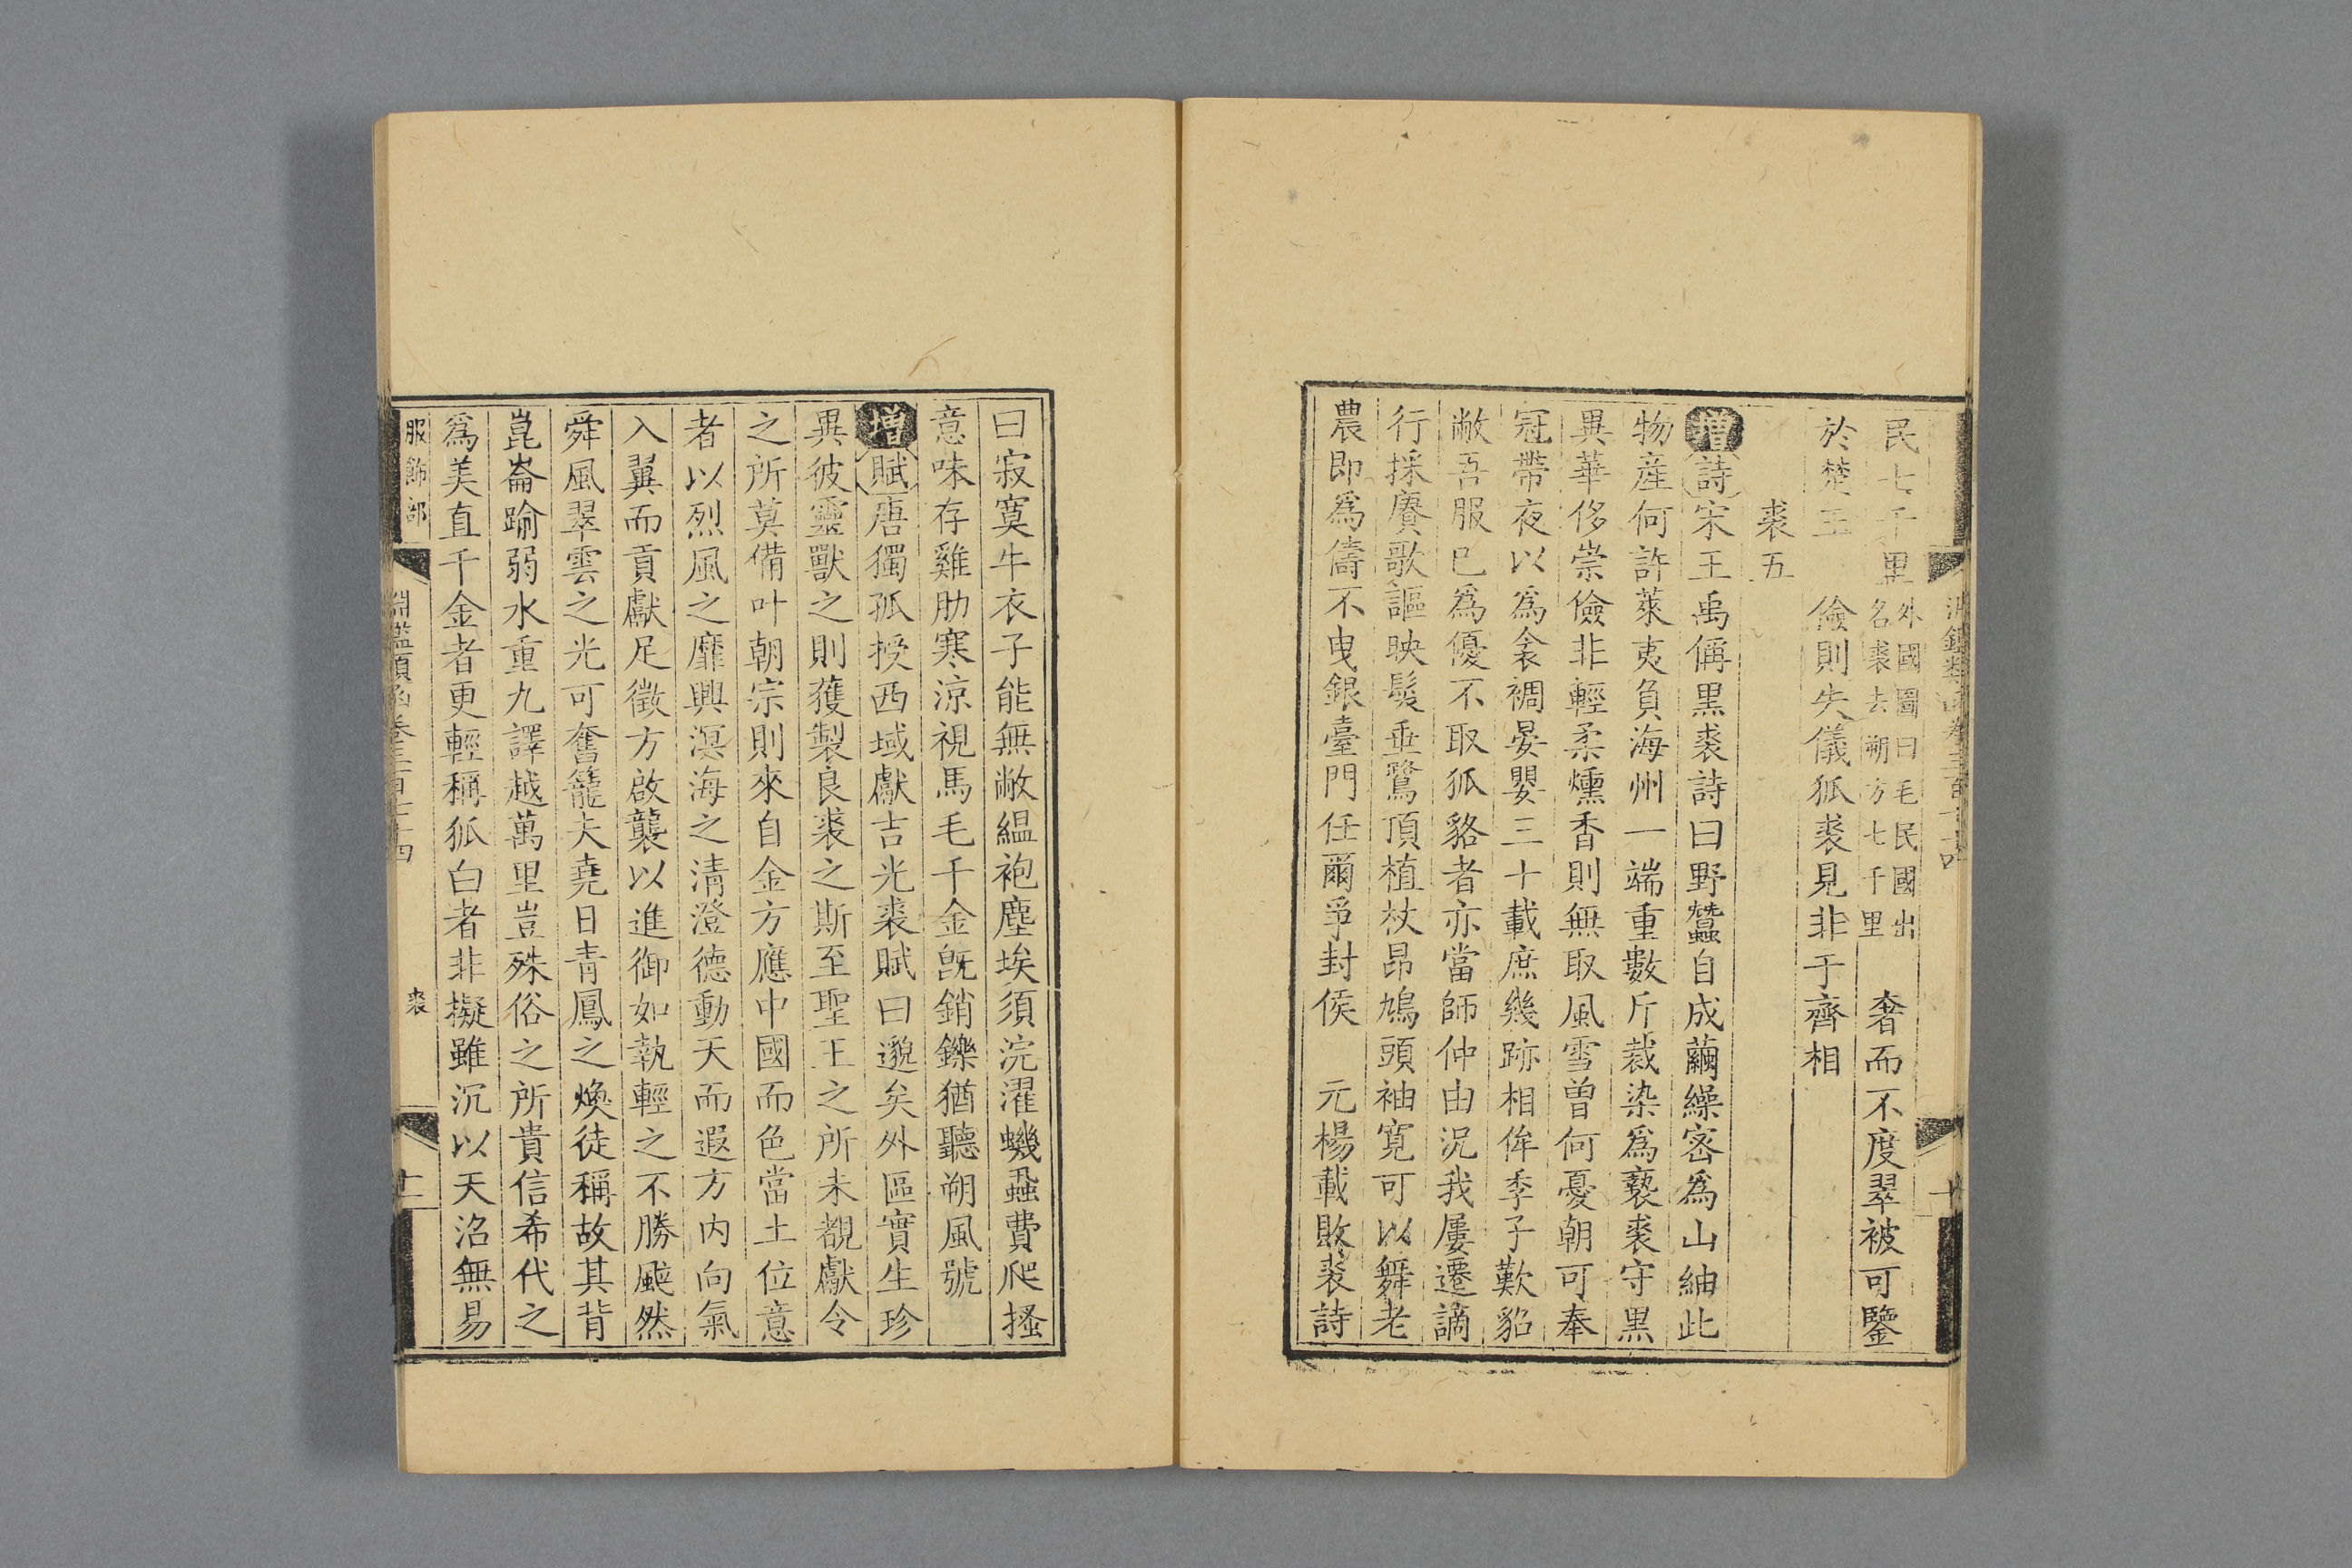 民七千里外國圖曰毛民國出名裘去朔方七千里 奢而不度翠被可鑒
於楚王 儉則失儀狐裘見非于齊相
裘五
增詩宋王禹偁黑裘詩曰野蠶自成繭繰密爲山紬此
物産何許萊夷負海州一端重數斤裁染爲褻裘守黑
異華侈崇儉非輕柔燻香則無取風雪曽何憂朝可奉
冠帶夜以爲衾裯晏嬰三十載庶幾跡相侔季子歎貂
敝吾服已爲優不取狐貉者亦當師仲由況我屢遷謫
行採賡歌謳映髮垂鷺頂植杖昂鳩頭袖寛可以舞老
農即爲儔不曳銀臺門任爾爭封侯 元楊載敗裘詩
曰寂寞牛衣子能無敝緼袍塵埃須浣濯蟣蝨費爬搔
意味存雞肋寒涼視馬毛千金旣銷鑠猶聽朔風號
增賦唐獨孤授西域獻吉光裘賦曰邈矣外區實生珍
異彼靈獸之則獲製良裘之斯至聖王之所未覩獻令
之所莫備叶朝宗則來自金方應中國而色當土位意
者以烈風之靡興溟海之清澄德動天而遐方内向氣
入翼而貢獻足徵方啟襲以進御如執輕之不勝颰然
舜風翠雲之光可奮籠夫堯日青鳳之煥徒稱故其背
崑崙踰弱水重九譯越萬里豈殊俗之所貴信希代之
爲美直千金者更輕稱狐白者非擬雖沉以天沿無易
服飾部 裘 十一